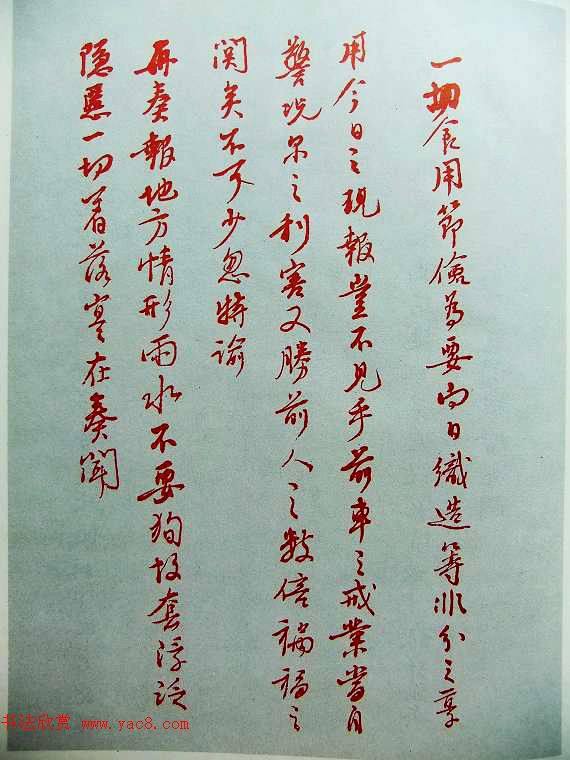 一切食用節儉為要向日織造等非分之享
用今日之現報豈不見乎前車之戒業當自
警况尔之利害又勝前人之数倍禍福之
関矣不可少忽特諭
再奏報地方情形雨水不要狥故套浮泛
隐慝一切着落寔在奏聞
书法欣赏 www.yac8.com